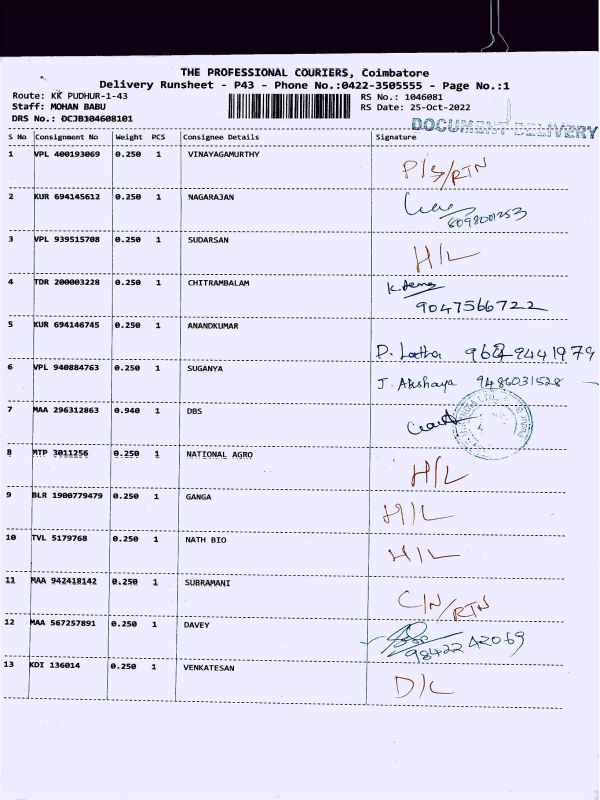 THE PROFESSIONAL COURIERS, Coimbatore
Delivery Runsheet - P43 - Phone No.:0422-3505555 - Page No.:1
Route: KK PUDHUR-1-43 RS No.: 1046081
Staff: MOHAN BABU RS Date: 25-Oct-2022
DRS No.: DCJB104608101
DOCUMENT DELIVERY
S No Consignment No Weight PCS Consignee Details Signature
1 VPL 400193069 0.250 1 VINAYAGAMURTHY P/S/RTN
2 KUR 694145612 0.250 1 NAGARAJAN
3 VPL 939515708 0.250 1 SUDARSAN H/L
4 TDR 200003228 0.250 1 CHITRAMBALAM
9047566722
5 KUR 694146745 0.250 1 ANANDKUMAR
D. Latha
6 VPL 940884763 0.250 1 SUGANYA J. Akshaya 9486031528
7 MAA 296312863 0.940 1 DBS
8 MTP 3011256 0.250 1 NATIONAL AGRO H/L
9 BLR 1900779479 0.250 1 GANGA H/L
10 TVL 5179768 0.250 1 NATH BIO H/L
11 MAA 942418142 0.250 1 SUBRAMANI C/N/RTN
12 MAA 567257891 0.250 1 DAVEY
98422 42069
13 KDI 136014 0.250 1 VENKATESAN D/L